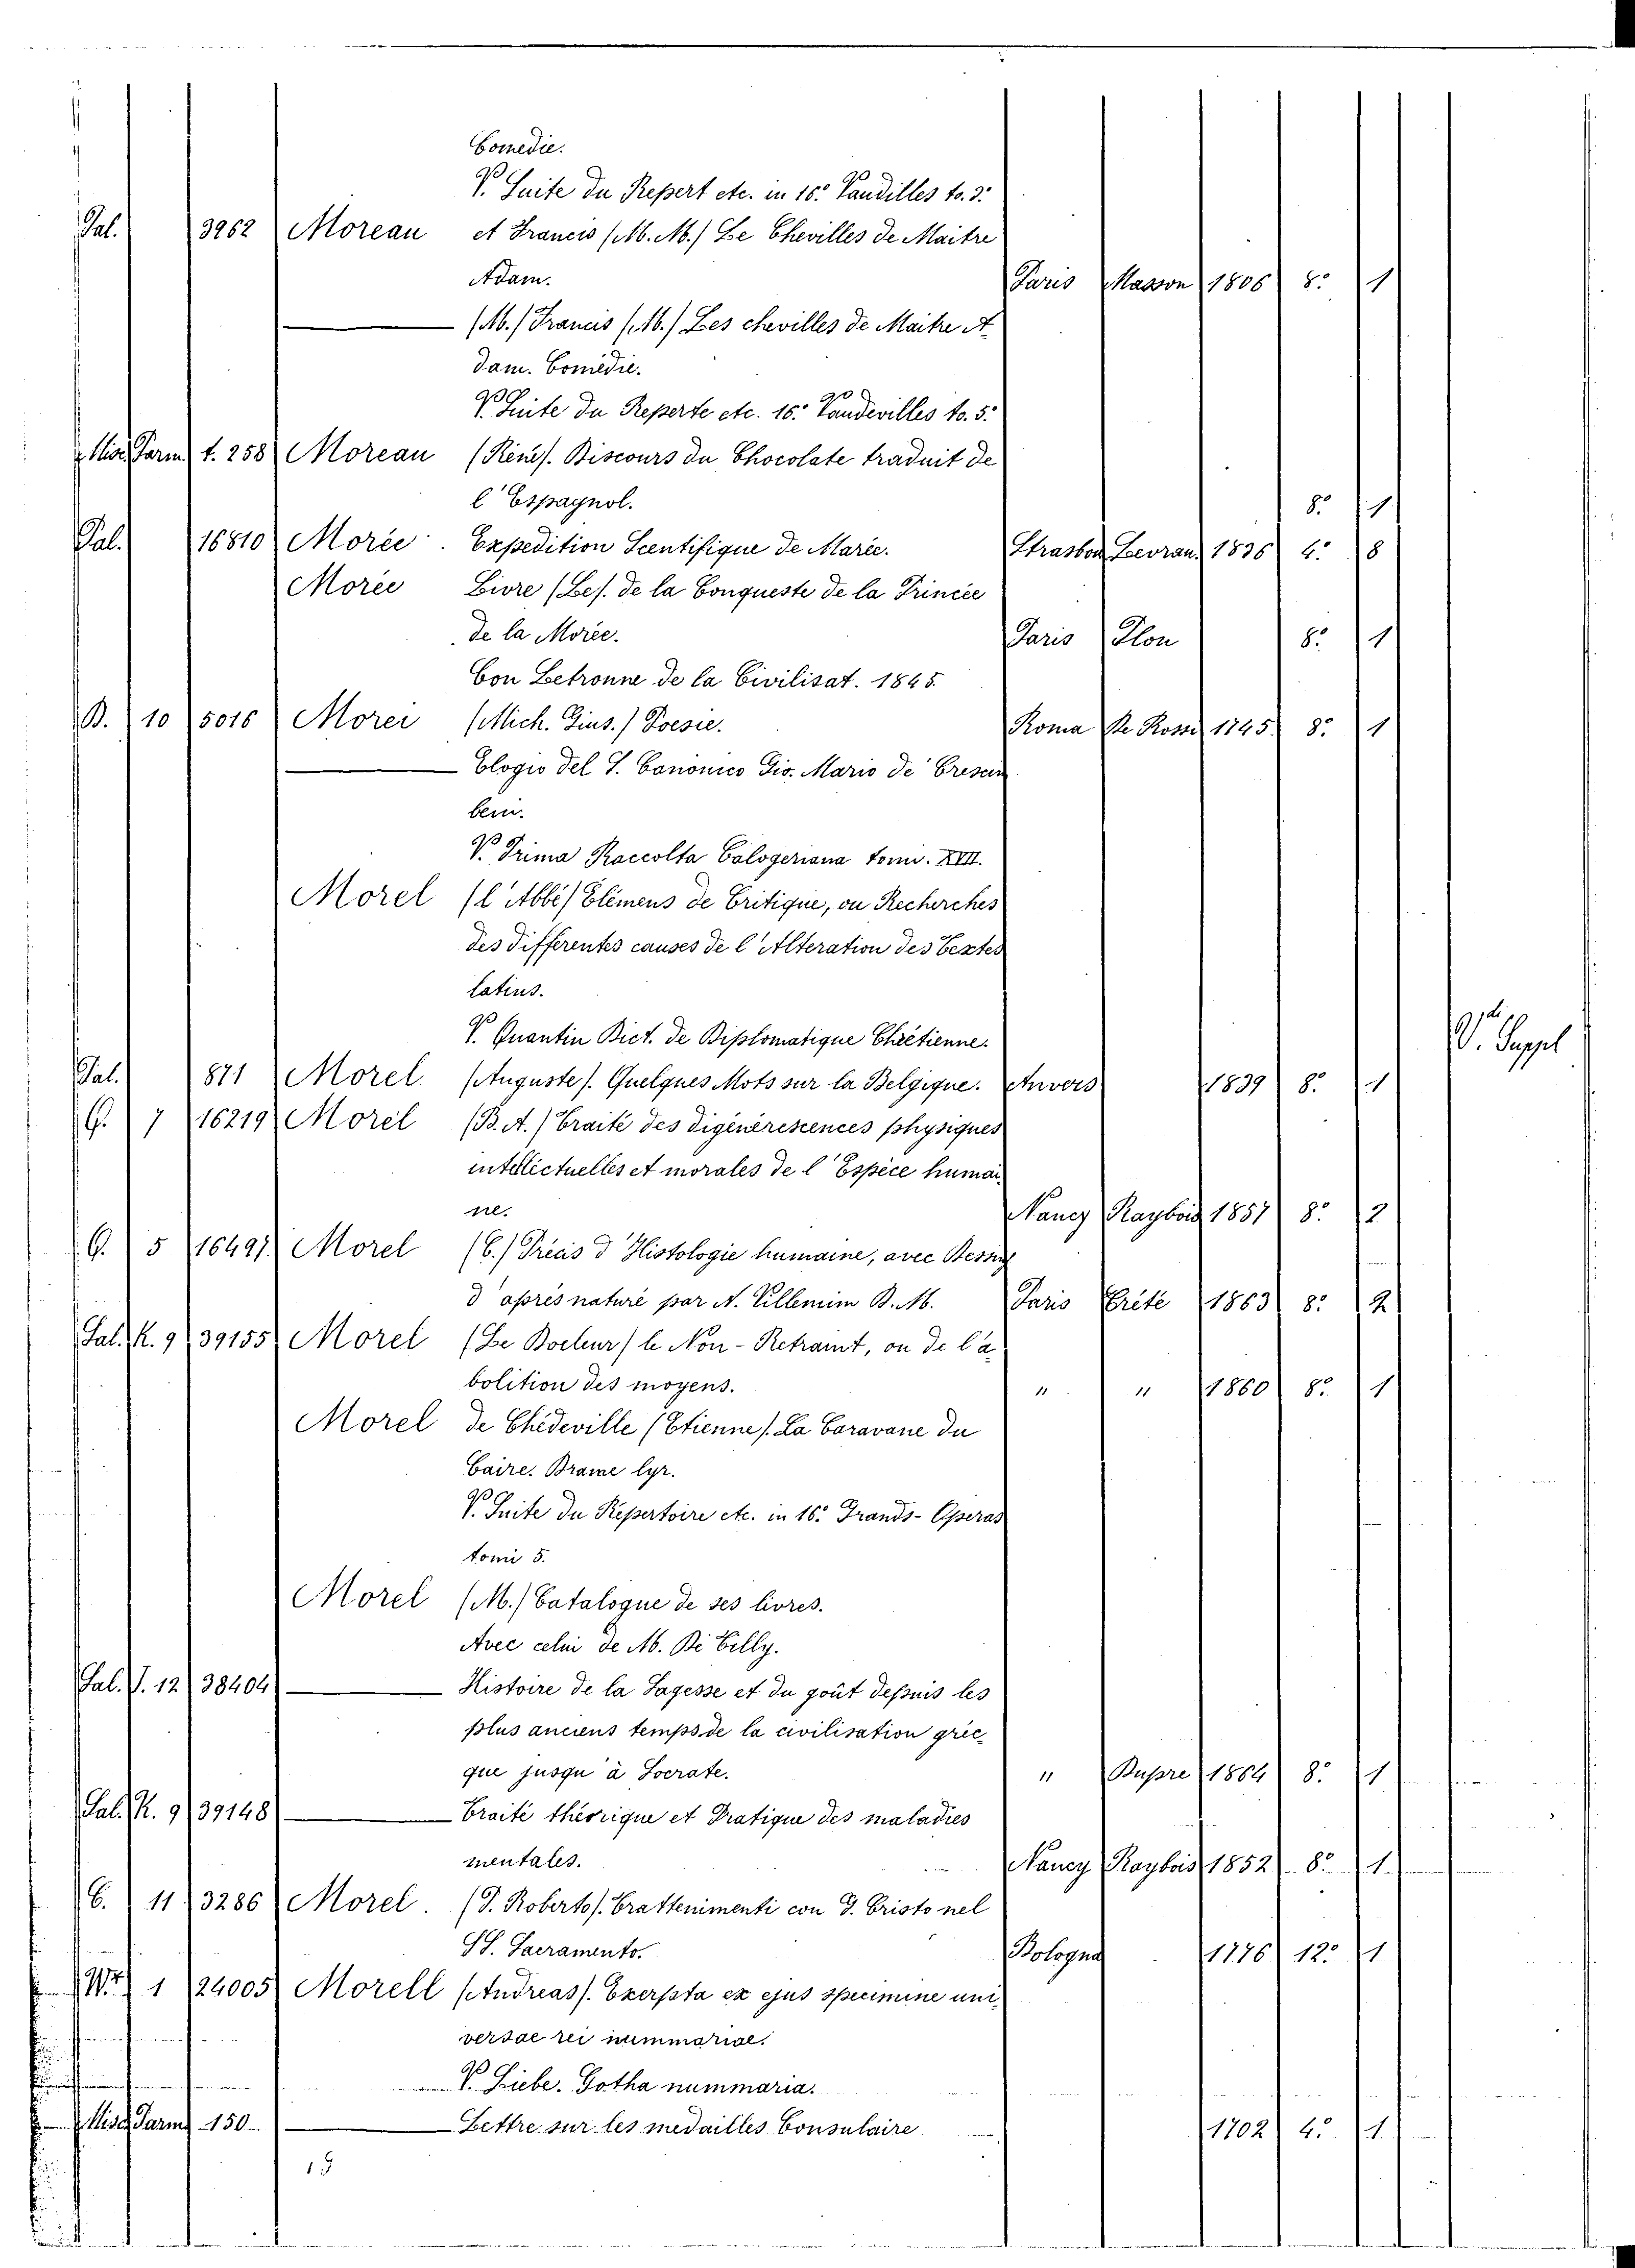 Comedie.
V. Suite du Repert etc. in 16.° Vaudilles to. 3.°
Pal. 3962 Moreau et Francis (M. M.) Le Chevilles de Maitre
Adam. Paris Masson 1806 8.° 1
(M.) Francis (M.) Les chevilles de Maitre A-
dam. Comédie.
V. Suite du Reperte etc. 16.° Vaudevilles to. 5.°
Misc. Parm. t. 258 Moreau (René). Discours du Chocolate traduit de
l'Espagnol. 8.° 1
Pal. 16810 Morée. Expedition Scentifique de Marée. Strasbou Levrau. 1836 4.° 8
Morée Livre (Le). de la Conqueste de la Princée
de la Morée. Paris Plon 8.° 1
Con Letronne de la Civilisat. 1845.
B. 10 5016 Morei (Mich. Gius.) Poesie. Roma De Rossi 1745. 8.° 1
Elogio del S. Canonico Gio. Mario de' Crescim
beni.
V. Prima Raccolta Calogeriana tom. XVII.
Morel (l'Abbé) Elémens de Critique, ou Recherches
des differentes causes de l'Alteration des Textes
latins.
V. Quantin Dict. de Diplomatique Chrétienne. V. Suppl
Pal. 871 Morel (Auguste). Quelques Mots sur la Belgique. Anvers 1839 8.° 1
G. 7 16219 Morel (B. A.) Traité des digénérescences physiques
intellectuelles et morales de l'Espéce humai-
ne. Nancy Raybois 1857 8.° 2
G. 5 16497 Morel (C.) Précis d'Histologie humaine, avec Dessins
d'aprés nature par A. Villemim D. M. Paris Crété 1863 8.° 2
Pal. R. 9 39155 Morel (Le Docteur) le Non-Retramt, ou de l'a-
bolition des moyens. " " 1860 8.° 1
Morel de Chédeville (Etienne). La Caravane du
Caire. Drame lyr.
V. Suite du Répertoire etc. in 16.° Grands-Operas
tomi 5.
Morel (M.) Catalogue de ses livres.
Avec celui de M. De Tilly.
Pal. V. 12 38404 Histoire de la Sagesse et du goût depuis les
plus anciens temps de la civilisation grec-
que jusqu'à Socrate. " Dupre 1864 8.° 1
Pal. R. 9 39148 Traité théorique et Pratique des maladies
mentales. Nancy Raybois 1852 8.° 1
C. 11 3286 Morel. (P. Roberto). Trattenimenti con G. Cristo nel
SS. Sacramento. Bologna 1776 12.° 1
1 24005 Morell (Andreas). Exerpta ex ejus specimine uni-
versae rei nummariae.
V. Liebe. Gotha nummaria.
Misc. Parm. 150 Lettre sur les medailles Consulaire 1702 4.° 1